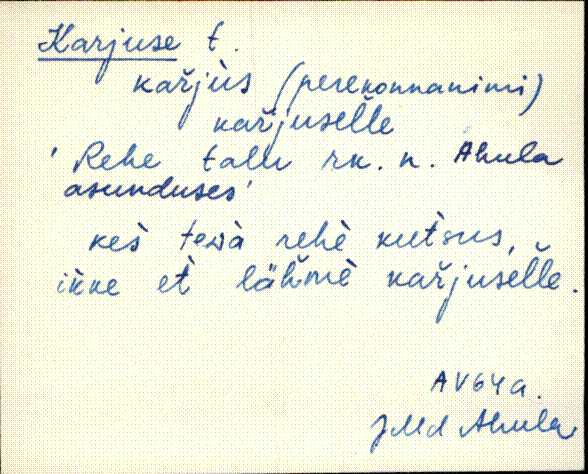 Karjuse t.
kařjùs (perekonnanimi)
kařjuselle
'Rehe talu rk. n. Ahula
asunduses'
kes̀ tedà rehè kut̀sus,
ikke et̀ lähmè kařjuselle.
AV64a.
JMd Ahula